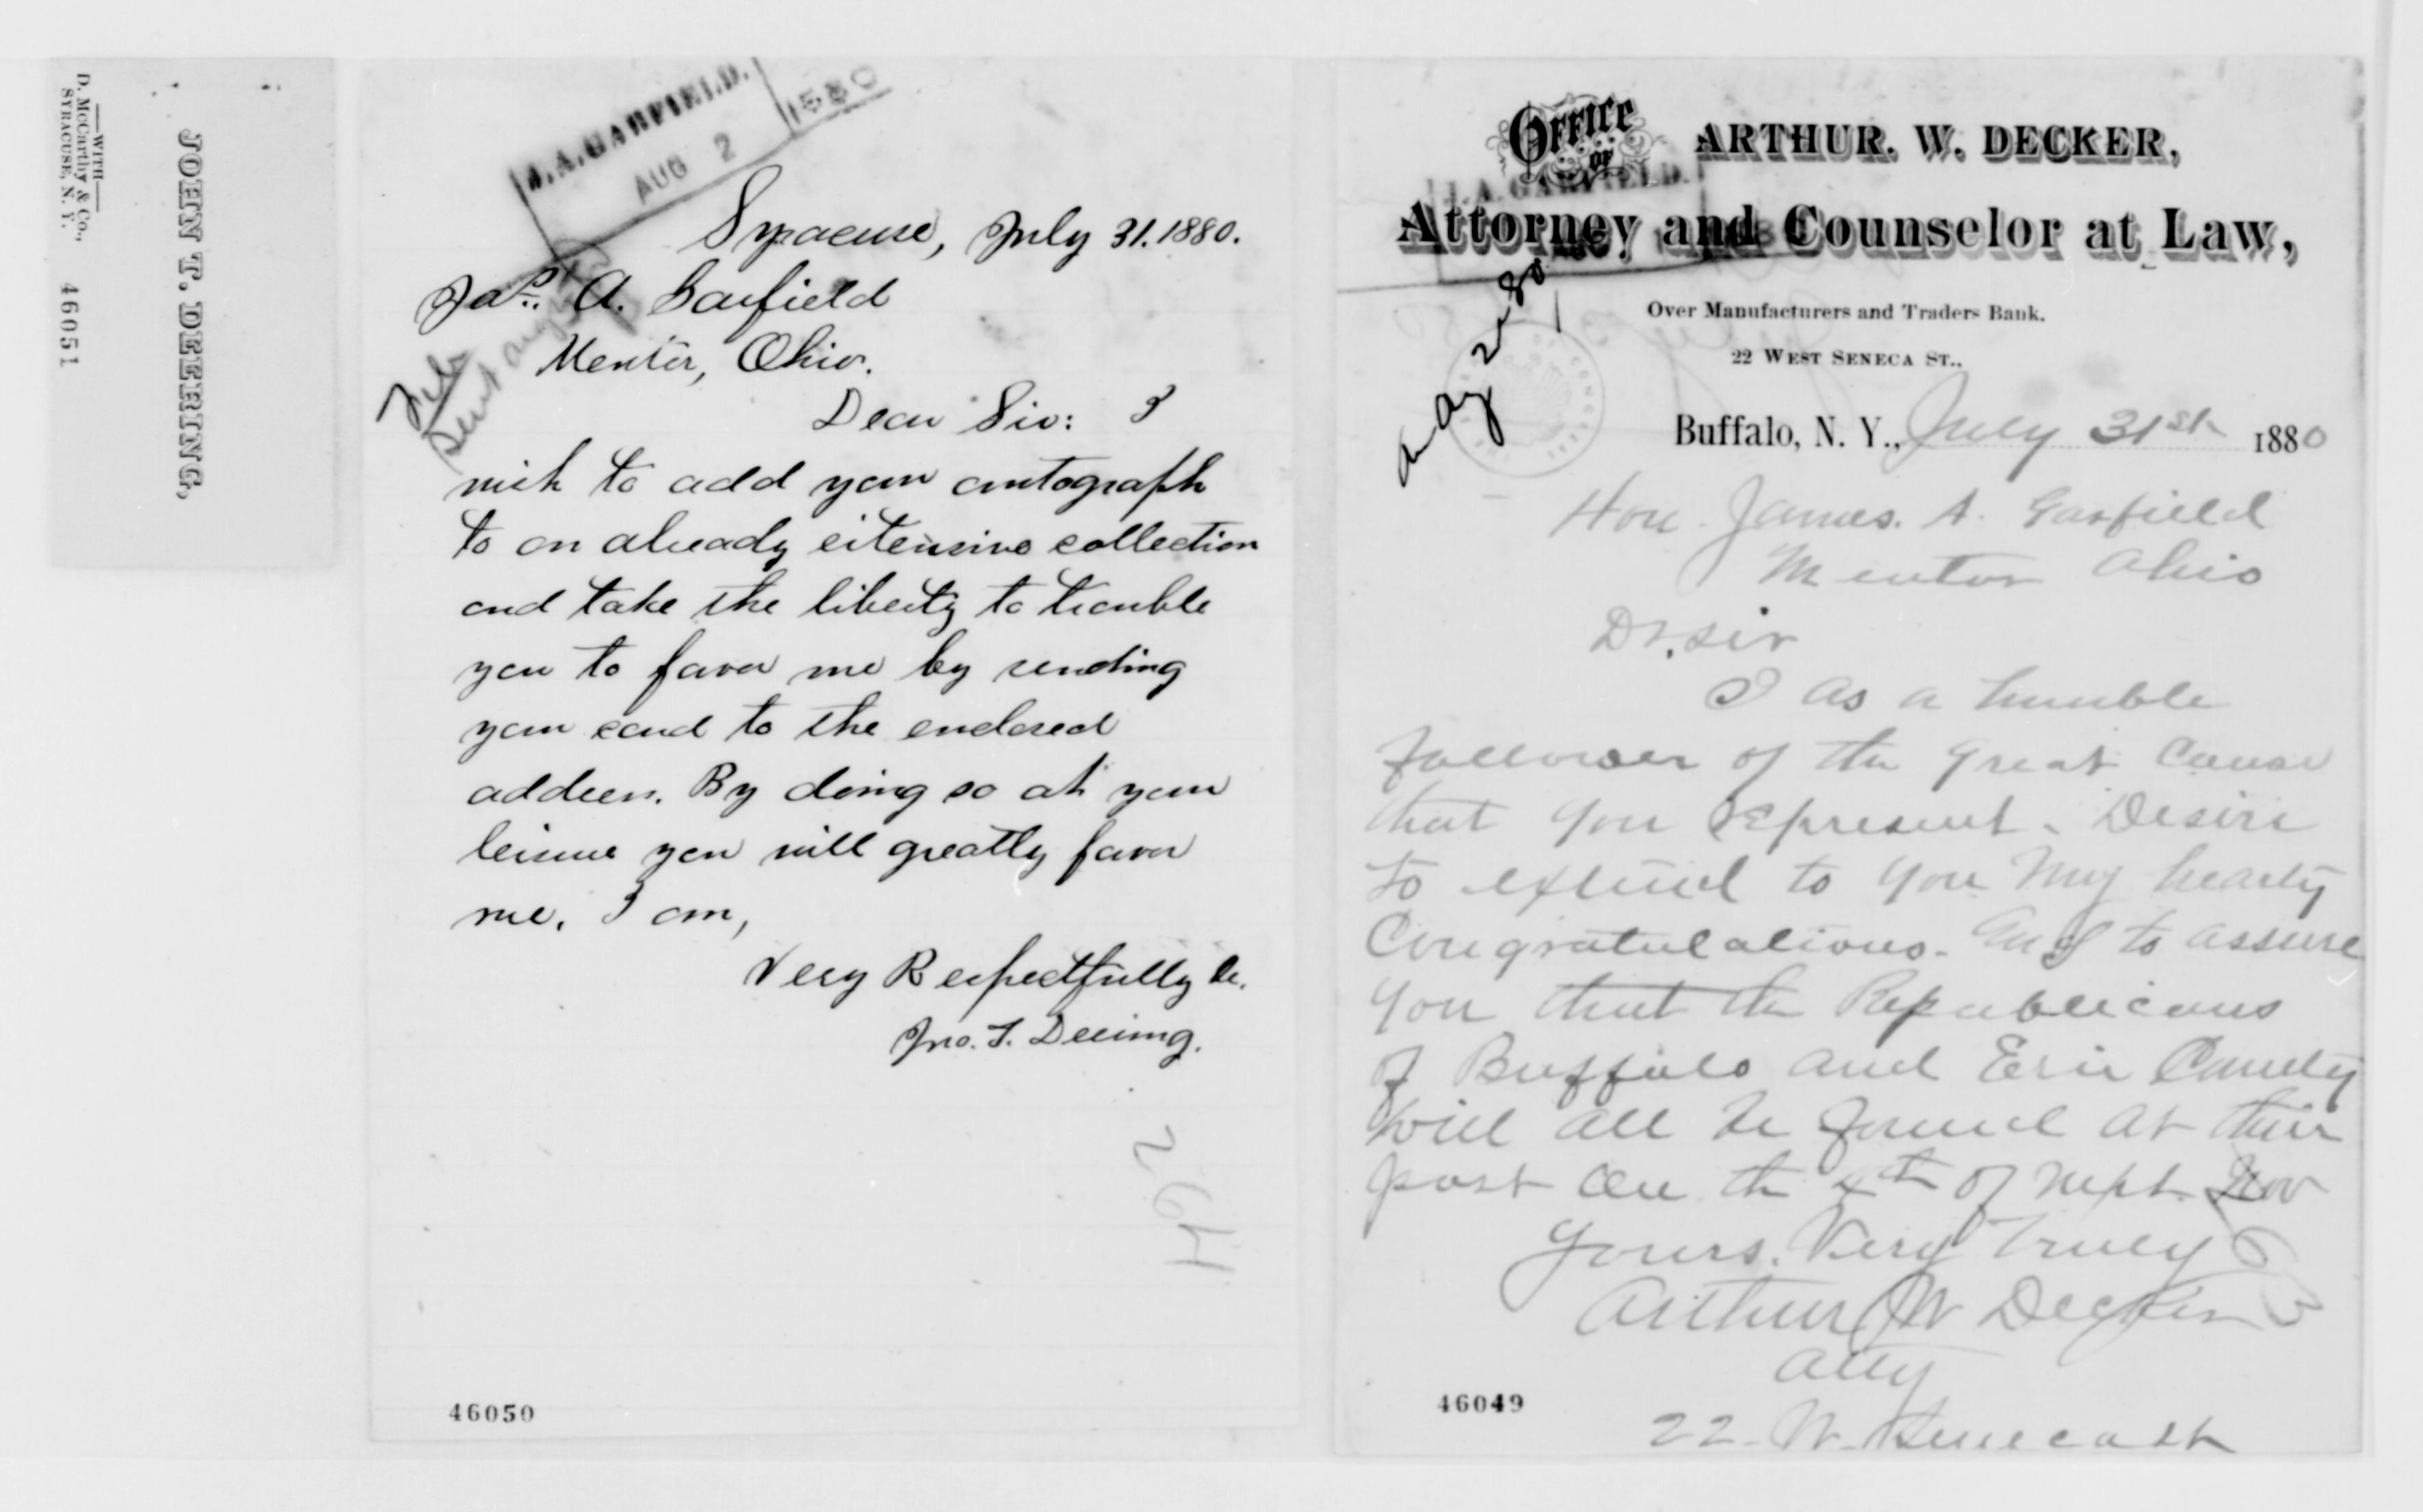 JOHN T. DEERING,
WITH
D. McCarthy & Co.,
SYRACUSE, N. Y.
46051
J. A. GARFIELD.
AUG 2 1880
Syracuse, July 31. 1880.
Jas. A. Garfield
Mentor, Ohio.
Sent Aug
Dear Sir: I
wish to add your autograph
to an already extensive collection
and take the liberty to trouble
you to favor me by sending
your card to the enclosed
address. By doing so at your
leisure you will greatly favor
me. I am,
Very Respectfully &c.
Jno. T. Deering.
46050
OFFICE OF
ARTHUR. W. DECKER,
J. A. GARFIELD.
Attorney and Counselor at Law,
Over Manufacturers and Traders Bank.
22 WEST SENECA ST..
Aug 2 80
Buffalo, N. Y., July 31st 1880
Hon. James. A. Garfield
Mentor Ohio
Dr, sir
I as a humble
follower of the great Cause
that you represent. Desire
to extend to you my hearty
Congratulations. And to assure
you that the Republicans
of Buffalo and Erie County
will all be found at their
post on the 4th of Nov
Yours. Very Truly
Arthur W Decker
Atty
22. W. Seneca St
46049